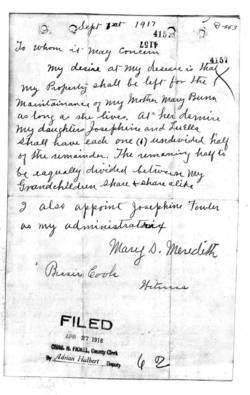 Sept 1st 1917
4157
4157
To whom it May Concern
My desire at My desease is that
My Property shall be left for the
Maintainance of My Mother Mary Bunn
as long as she lives, at her demise
My daughters Josephine and Luella
shall have each one (1) undevided half
of the remainder. The remaining half to
be equally divided between My
Grandchildren Share & share alike
I also appoint Josephine Fowler
as my administratrix
Mary D. Meredith
Cook
Witness
FILED
APR 27 1918
County Clerk
By Adrian Hulbert Deputy
62